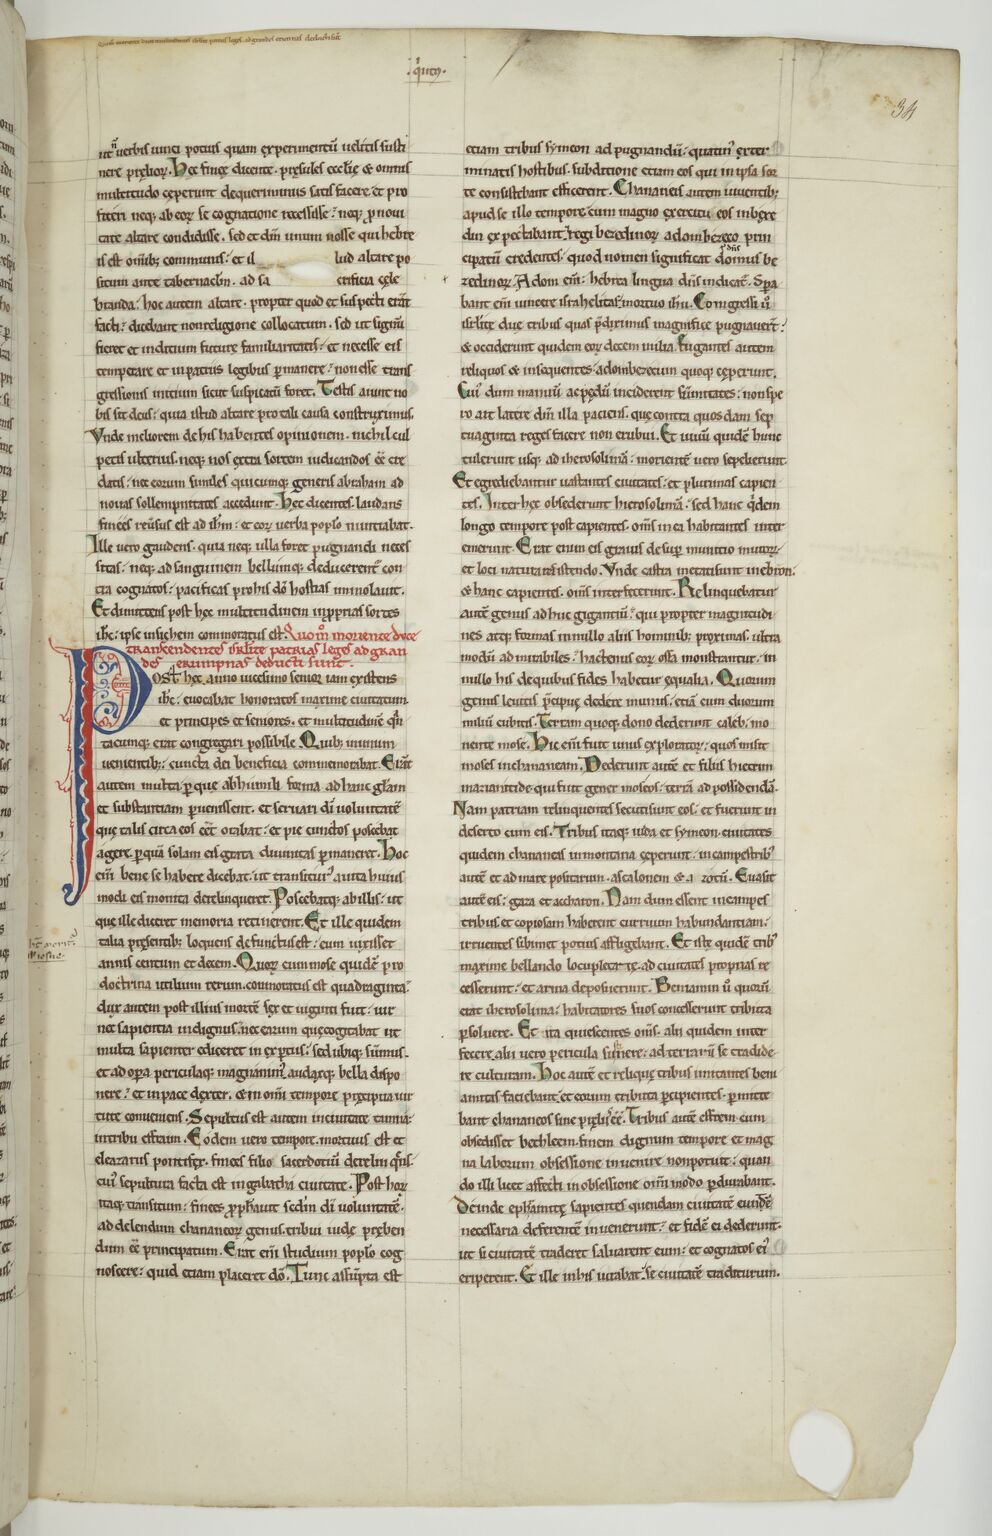 Quom̄ moriente duce transcendentes isrl̄ite patrias leges ad grandes erumnas deducti sūt
.q̄int9.
34
ut ūerbis uinci potius quam experimentū uelitis susti
nere preliorꝝ. Hec finee dicente. presules ecclīe & omnis
multitudo ceperunt de querimoniis satis facere. et pro
fiteri neqꝫ ab eorꝝ se cognatione recessisse. neqꝫ ꝓ noui
tate altare condidisse. sed et dm̄ unum nosse qui hebre
is est om̄ibꝫ communis. et il lud altare po
situm ante tabernaclm̄. ad sa crificia cele
branda. hoc autem altare. propter quod et suspecti erāt
facti. dicebant non religione collocatum. sed ut signū
fieret et inditium future familiaritatis. et necesse eis
temperare et in patriis legibus ꝑmanere. non esse trans
gressionis initium sicut suspicatū foret. Testis aiunt no
bis sit deus. quia istud altare pro tali causa construximus.
Vnde meliorem de his habentes opinionem. nichil cul
petis ulterius. neqꝫ nos extra sortem iudicandos eē cre
datis. nec eorum similes qui cumqꝫ generis abraham ad
nouas sollempnitates accedunt. Hec dicentes. laudans
finees reūsus est ad ih̄m. et eorꝝ uerba poplo nuntiabat.
Ille uero gaudens. quia neqꝫ ulla foret pugnandi neces
sitas. neqꝫ ad sanguinem bellumqꝫ deducerent con
tra cognatos. pacificas pro his dō hostias immolauit.
Et dimittens post hec multitudinem in ꝓprias sortes
ih̄c. ipse in sichem commoratus est. Quom̄ moriente duce
transcendentes isrl̄ite patrias leges ad gran
des erumpnas deducti sunt.
Post hec anno uicesimo senior iam existens
ih̄c. euocabat honoratos maxime ciuitatum
et principes et seniores. et multitudinē q̄n
tacumqꝫ erat congregari possibile. Quibꝫ in unum
uenientibꝫ. cuncta dei beneficia commemorabat. Erāt
autem multa ꝑ que ab humili forma ad hanc glam̄
et substantiam ꝑuenissent. et seruari dī uoluntatē
que talis circa eos eēt orabat. et pie cunctos poscebat
agere. ꝑ quā solam eis grata diuinitas ꝑmaneret. Hoc
em̄ bene se habere dicebat. ut transitur9 a uita huius
modi eis monita derelinqueret. Poscebatqꝫ ab illis. ut
que ille diceret memoria retinerent. Et ille quidem
talia presentibꝫ loquens defunctus est. cum uixisset
annis centum et decem. Quorꝝ cum mose quidē pro
doctrina utilium rerum. commoratus est quadraginta.
dux autem post illius mortē sex et uiginti fuit. uir
nec sapientia indignus. nec earum que cogitabat ut
multa sapienter ediceret inexpertus. sed ubiqꝫ sūmus.
et ad oꝑa periculaqꝫ magnanim9 audaxqꝫ. bella dispo
nere. et in pace dexter. & in om̄i tempore precipua uir
tute conueniens. Sepultus est autem in ciuitate tamna.
in tribu effraim. Eodem uero tempore. mortuus est et
eleazarus pontifex. finees filio sacerdotiū derelinq̄ns.
cui9 sepultura facta est in gabatha ciuitate. Post horꝝ
itaqꝫ transitum. finees ꝓphauit scd̄m dī uoluntatē.
ad delendum chananeorꝝ genus. tribui iude preben
dum eē principatum. Erat em̄ studium poplo cog
noscere. quid etiam placeret dō. Tunc assūpta est
hic̄ moritr̄
iosue.
etiam tribus symeon ad pugnandū. quatin9 exter
minatis hostibus. subditione etiam eos qui in ipsa sor
te consistebant efficerent. Chananeis autem uiuentibꝫ
apud se illo tempore cum magno exercitu eos in beze
chu expectabant. regi bezedinorꝝ adombezeco prin
cipatū credentes. quod nomen significat dn̄s domus be
zedinorꝝ. Adom em̄. hebrea lingua dn̄s indicat̄. Sꝑa
bant em̄ uincere israhelitas. mortuo ihū. Congressi ū
isrl̄ite due tribus quas p̄diximus magnifice pugnauerūt.
& occiderunt quidem eorꝝ decem milia. Fugantes autem
reliquos & insequentes. adombezecum quoqꝫ ceperunt.
Cui9 dum manuū ac pedū inciderent sūmitates. non spe
ro ait latere dm̄ illa paciens. que contra quosdam sep
tuaginta reges facere non erubui. Et uiuū quidē hunc
tulerunt usqꝫ ad iherosolimā. morientē uero sepelierunt.
Et egrediebantur uastantes ciuitates. et plurimas capien
tes. Inter hec obsederunt hierosolimā. sed hanc q̄dem
longo tempore post capientes. om̄s in ea habitantes inter
emerunt. Erat enim eis grauis desuꝑ munitio murorꝝ.
et loci natura resistendo. Vnde castra metati sunt in ebron.
& hanc capientes. om̄s interfecerunt. Relinquebatur
autē genus adhuc gigantiū. qui propter magnitudi
nes atqꝫ formas in nullo aliis hominibꝫ proximas. ultra
modū admirabiles. hactenus eorꝝ ossa monstrantur. in
nullo his de quibus fides habetur equalia. Quorum
genus leuitis p̄cipue dedere munus. etiā cum duorum
miliū cubitis. Terram quoqꝫ dono dederunt caleb. mo
nente mose. Hic em̄ fuit unus exploratorꝝ. quos misit
moses in chananeam. Dederunt autē et filiis hietrim
marianitide qui fuit gener moseos. terrā ad possidendā.
Nam patriam relinquentes secuti sunt eos. et fuerunt in
deserto cum eis. Tribus itaqꝫ iuda et symeon. ciuitates
quidem chananeis in montana ceperunt. in campestribꝫ
autē et ad mare positarum. ascalonem & azotū. Euasit
autē eis. gaza et accharon. Nam dum essent in campes
tribus et copiosam haberent curruum habundantiam.
irruentes sibimet potius affligebant. Et iste quidē trib9
maxime bellando locupletate. ad ciuitates proprias re
cesserunt. et arma deposuerunt. Beniamin ū quorū
erat iherosolima. habitatores suos concesserunt tributa
ꝑsoluere. Et ita quiescentes om̄s. alii quidem inter
fecere. alii uero pericula sustinere. ad terrarū se tradide
re culturam. Hoc autē et relique tribus imitantes beni
amitas faciebant. et eorum tributa ꝑcipientes. ꝑmitte
bant chananeos sine preliis eē. Tribus autē effrem cum
obsedisset bechleem. finem dignum tempore et mag
na laborum obsessione inuenire non potuit. quan
do illi licet affecti in obsessione om̄i modo ꝑdurabant.
Deinde ephramite sapientes quendam ciuitatē eundē
necessaria deferentē inuenerunt. et fidē ei dederunt.
ut si ciuitatē traderet saluarent eum. et cognatos ei9
eriperent. Et ille in his iurabat. se ciuitatē traditurum.